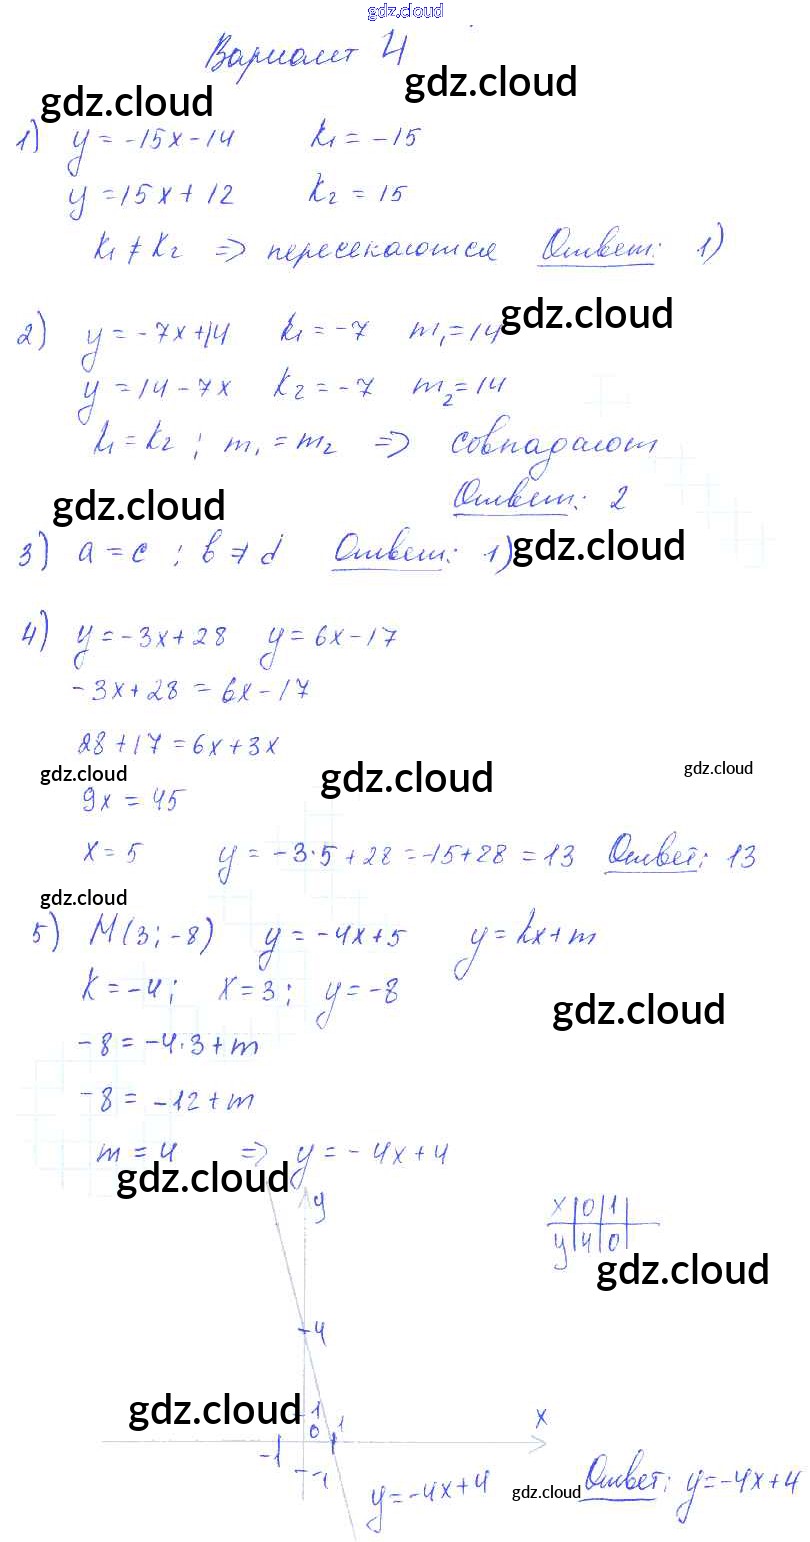 gdz.cloud
Вариант 4
gdz.cloud gdz.cloud
1) y = -15x - 14 k₁ = -15
y = 15x + 12 k₂ = 15
k₁ ≠ k₂ => пересекаются Ответ: 1)
2) y = -7x + 14 k₁ = -7 m₁ = 14 gdz.cloud
y = 14 - 7x k₂ = -7 m₂ = 14
k₁ = k₂ ; m₁ = m₂ => совпадают
gdz.cloud Ответ: 2
3) a = c ; b ≠ d Ответ: 1) gdz.cloud
4) y = -3x + 28 y = 6x - 17
-3x + 28 = 6x - 17
28 + 17 = 6x + 3x
gdz.cloud gdz.cloud gdz.cloud
9x = 45
x = 5 y = -3·5 + 28 = -15 + 28 = 13 Ответ: 13
gdz.cloud
5) M(3; -8) y = -4x + 5 y = kx + m
k = -4; x = 3; y = -8
gdz.cloud
-8 = -4·3 + m
-8 = -12 + m
m = 4 => y = -4x + 4
gdz.cloud
y
x 0 1
y 4 0
gdz.cloud
4
gdz.cloud
1
0 1 x
-1
-1
y = -4x + 4 gdz.cloud Ответ: y = -4x + 4